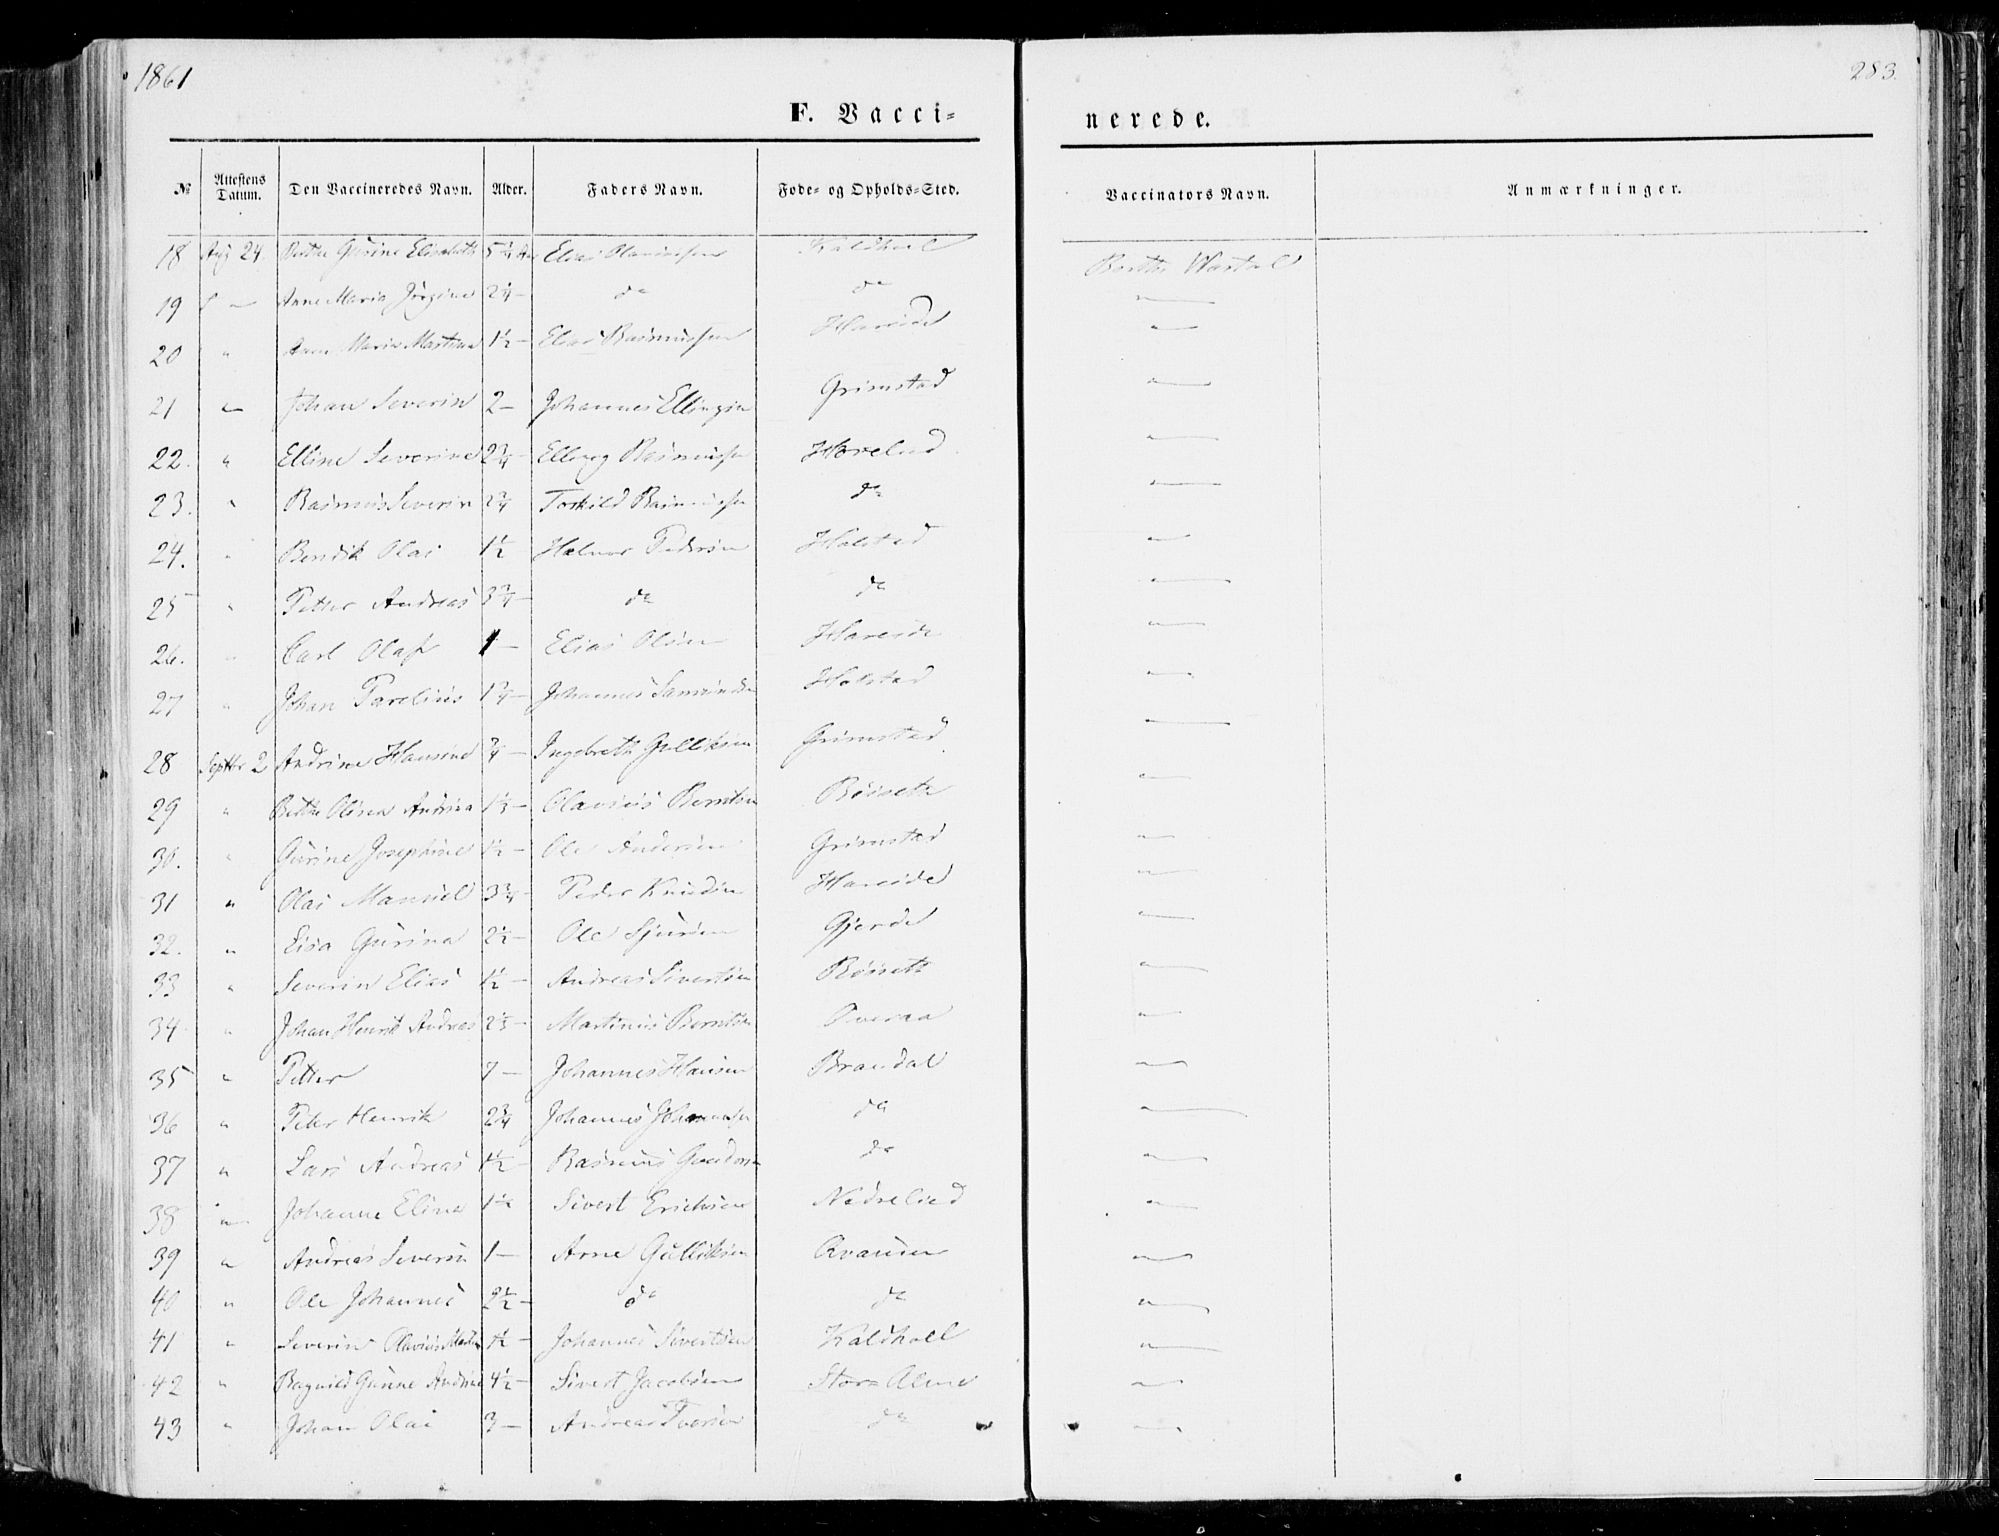 1861
283.
F. Vacci-
nerede.
№ Attestens Datum. Den Vaccineredes Navn. Alder. Faders Navn. Føde- og Opholds-Sted. Vaccinators Navn. Anmærkninger.
18 Aug 24 Berthe Gurine Elisabeth 5 1/4 Aar Elias Kaldhol Berthe
19 Anne Maria Jørgine 2 1/4 - do do
20 " Anne Marie Martine 1 1/2 - Elias Rasmussen Hareide
21 " Johan Severin 2 - Johannes Ellingsen Grimstad
22. " Elline Severine 2 3/4 - Elling Rasmussen Hovelied
23. " Rasmus Severin 2 3/4 Torkild Rasmussen do
24. " Bendik Olai 1 1/2 Halvor Pedersen Holstad
25 " Petter Andreas 3 3/4 - do do
26. " Carl Olaf 1 - Elias Olsen Hareide
27 " Johan Parelius 1 3/4 - Johannes Samundsen Holstad
28 Septbr 2 Andrine Hansine 3/4 - Ingebreth Gulliksen Grimstad
29 " Berthe Olina Andrea 1 1/3 - Olavius Berntsen Röiseth
30. " Gurine Josephine 1 1/2 - Ole Andersen Grimstad
31 " Olai Manuel 3 3/4 - Peder Knudsen Hareide
32. " Lisa Gurina 2 1/2 - Ole Sjursen Gjerde
33 " Severin Elias 1 1/2 - Andreas Sivertsen Röiseth
34 " Johan Henrik Andreas 2 1/3 - Martinus Berntsen Overaa
35 " Petter 7 - Johannes Hansen Brandal
36 " Peter Henrik 2 3/4 Johannes Johannessen do
37 " Lars Andreas 1 1/2 - Rasmus do
38 " Johanne Eline Sivert Erichsen Nedrelied
39 " Andreas Severin 1 - Arne Gulliksen
40 " Ole Johannes 2 1/2 - do do
41 " Severin Olavius Johannes Sivertsen Kaldholl
42 " Ragnild Gurine Andrine 4 1/2 - Sivert Jacobsen Stor-Alme
43 " Johan Olai 3 - Andreas Iversen do